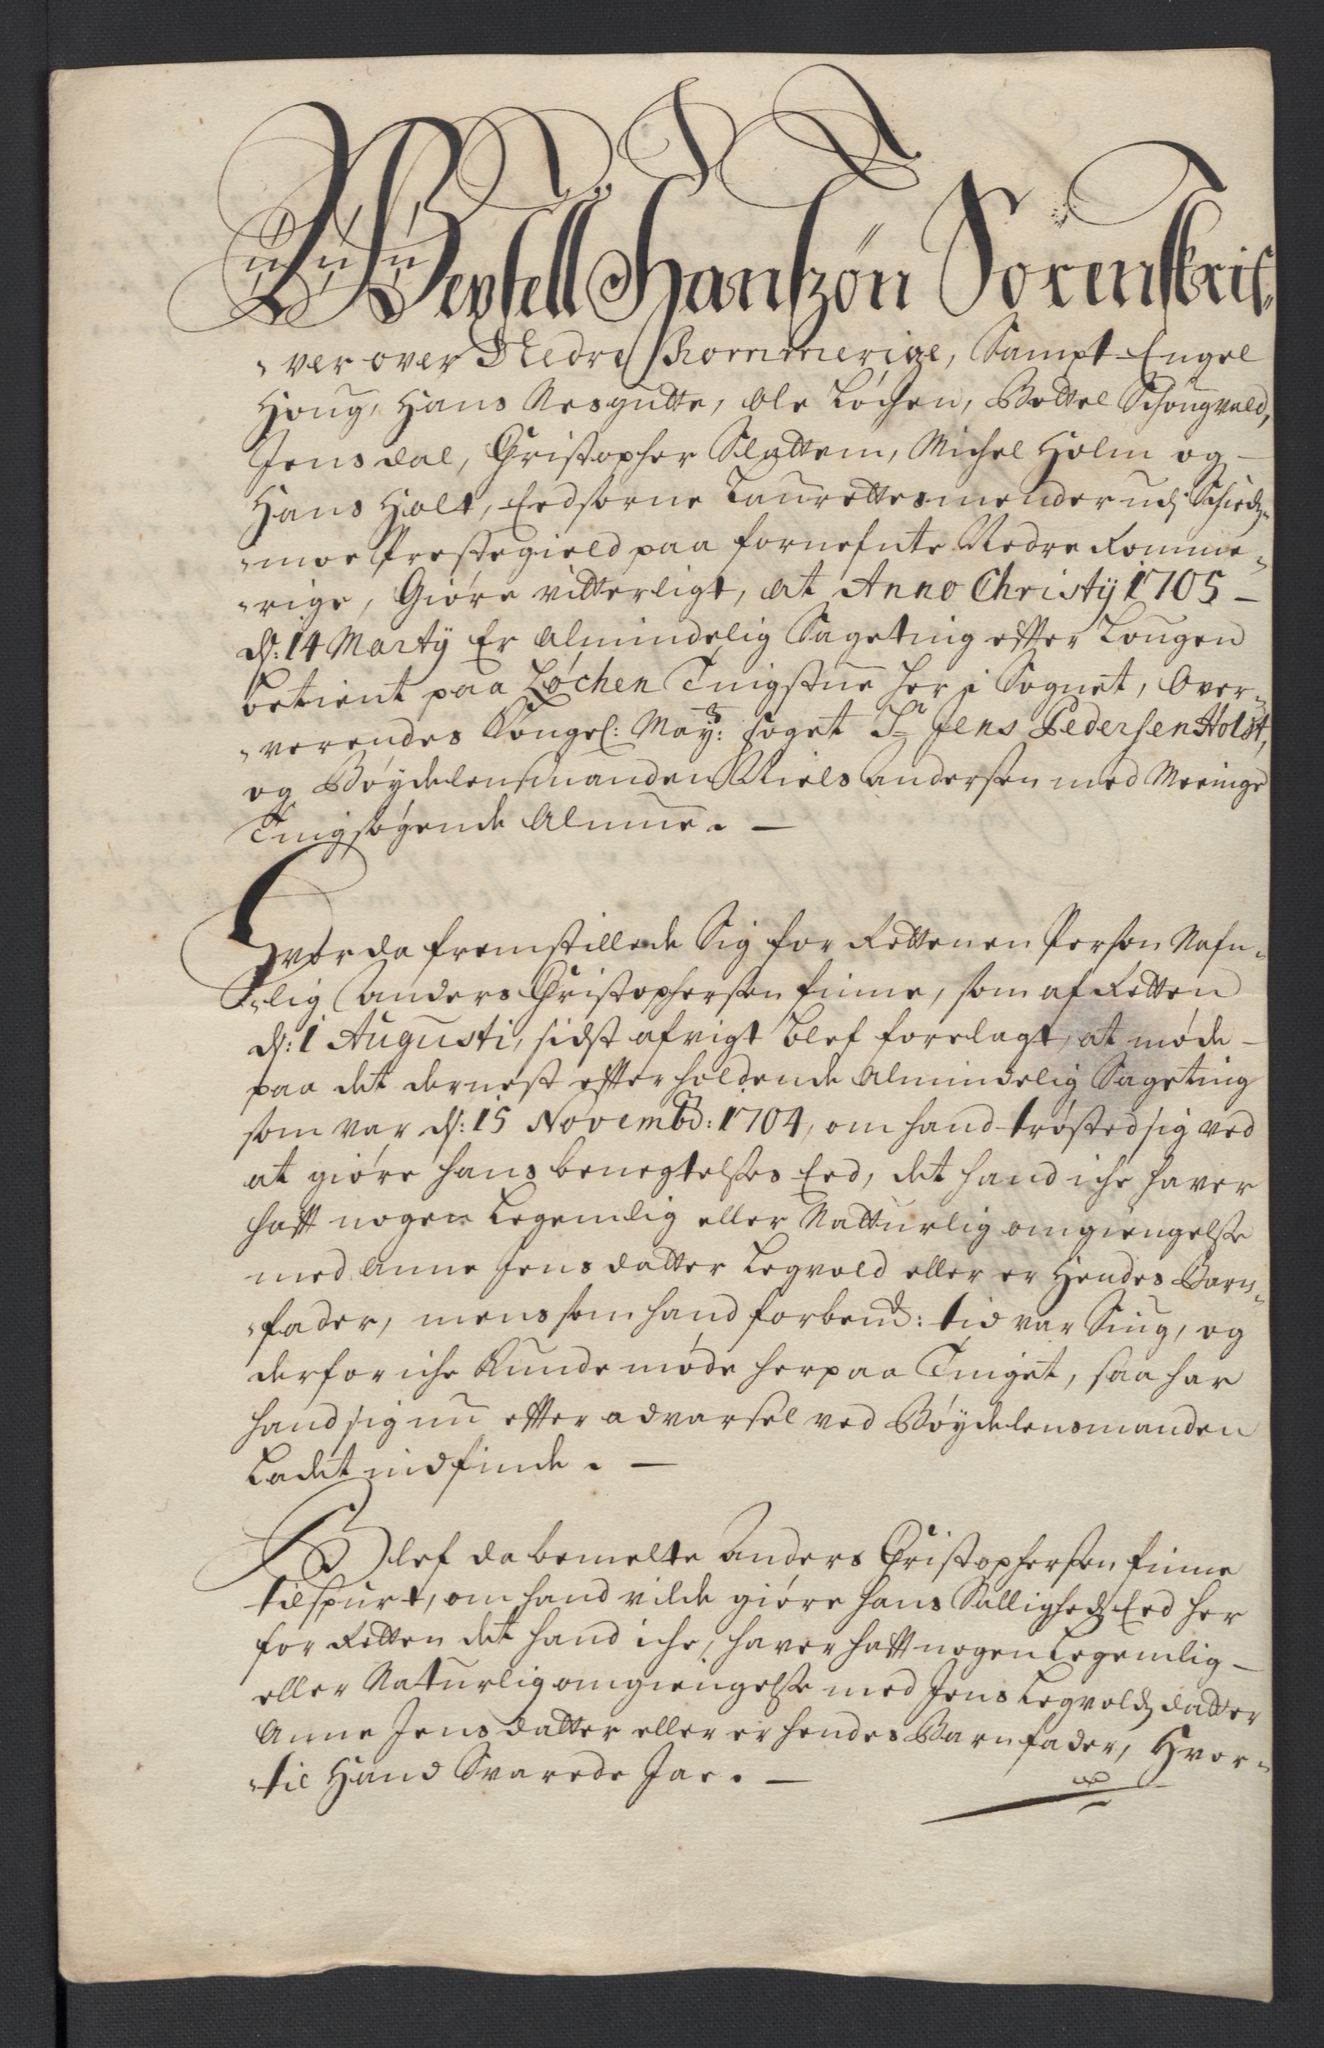 Bertell Hanszøn Sorenskrif-
ver over Nedre Rommerige, Sampt Engel
Houg, Hans Nesgutte, Ole Løchen, Bottel Schougvald,
Jens Dal, Christopher Slattem, Michel Holm og
Hans Holt, Eedsorne Laurettesmender udj Schiedz-
moe Prestegield paa fornefnte Nedre Romme-
rige, Giøre vitterligt, at Anno Christÿ 1705
d: 14 Martÿ Er Almindelig Sageting efter Lougen
betient paa Løchen Tingstue her i Sognet, Over-
verendes Kongel: May: foget Sr Jens Pedersen Holst,
og Bøydelensmanden Niels Andersen med Meenige
Tingsøgende Almue.
Hvor da fremstillede Sig for Retten en Person Nafn-
lig Anders Christophersen finne, som af Retten
d: 1 Augusti, sidst afvigt blef forelagt, at møde
paa det dernest efterholdende Almindelig Sageting
som var d: 15 Novembr: 1704, om hand trøsted sig ved
at giøre hans benegtelses Eed, det hand iche haver
hafft nogen Legemlig eller Natturlig omgiengelse
med Anne Jensdatter Legvold eller er Hendes Barn-
fader, mens som hand forbemte: tid var Siug, og
derfor iche kunde møde her paa Tinget, saa har
hand sig nu efter advarsel ved Bøydelensmanden
Ladet indfinde.
Blef da bemelte Anders Christophersen finne
tilspurt, om hand vilde giøre hans Sallighedz Eed her
for Retten det hand iche, haver hafft nogen Legemlig
eller Naturlig omgiengelse med Jens Legvoldz datter
Anne Jensdatter eller er hendes Barnfader, Hvor-
til Hand Svarede Jae.